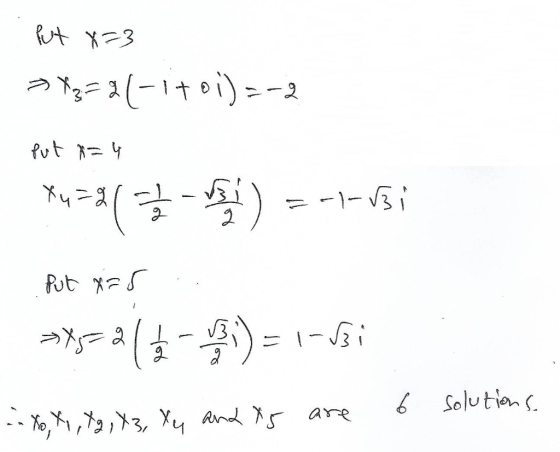 Put x=3
⇒ x₃ = 2(-1+0i) = -2
Put x=4
x₄ = 2(-1/2 - √3i/2) = -1-√3i
Put x=5
⇒ x₅ = 2(1/2 - √3/2 i) = 1-√3i
∴ x₀, x₁, x₂, x₃, x₄ and x₅ are 6 solutions.